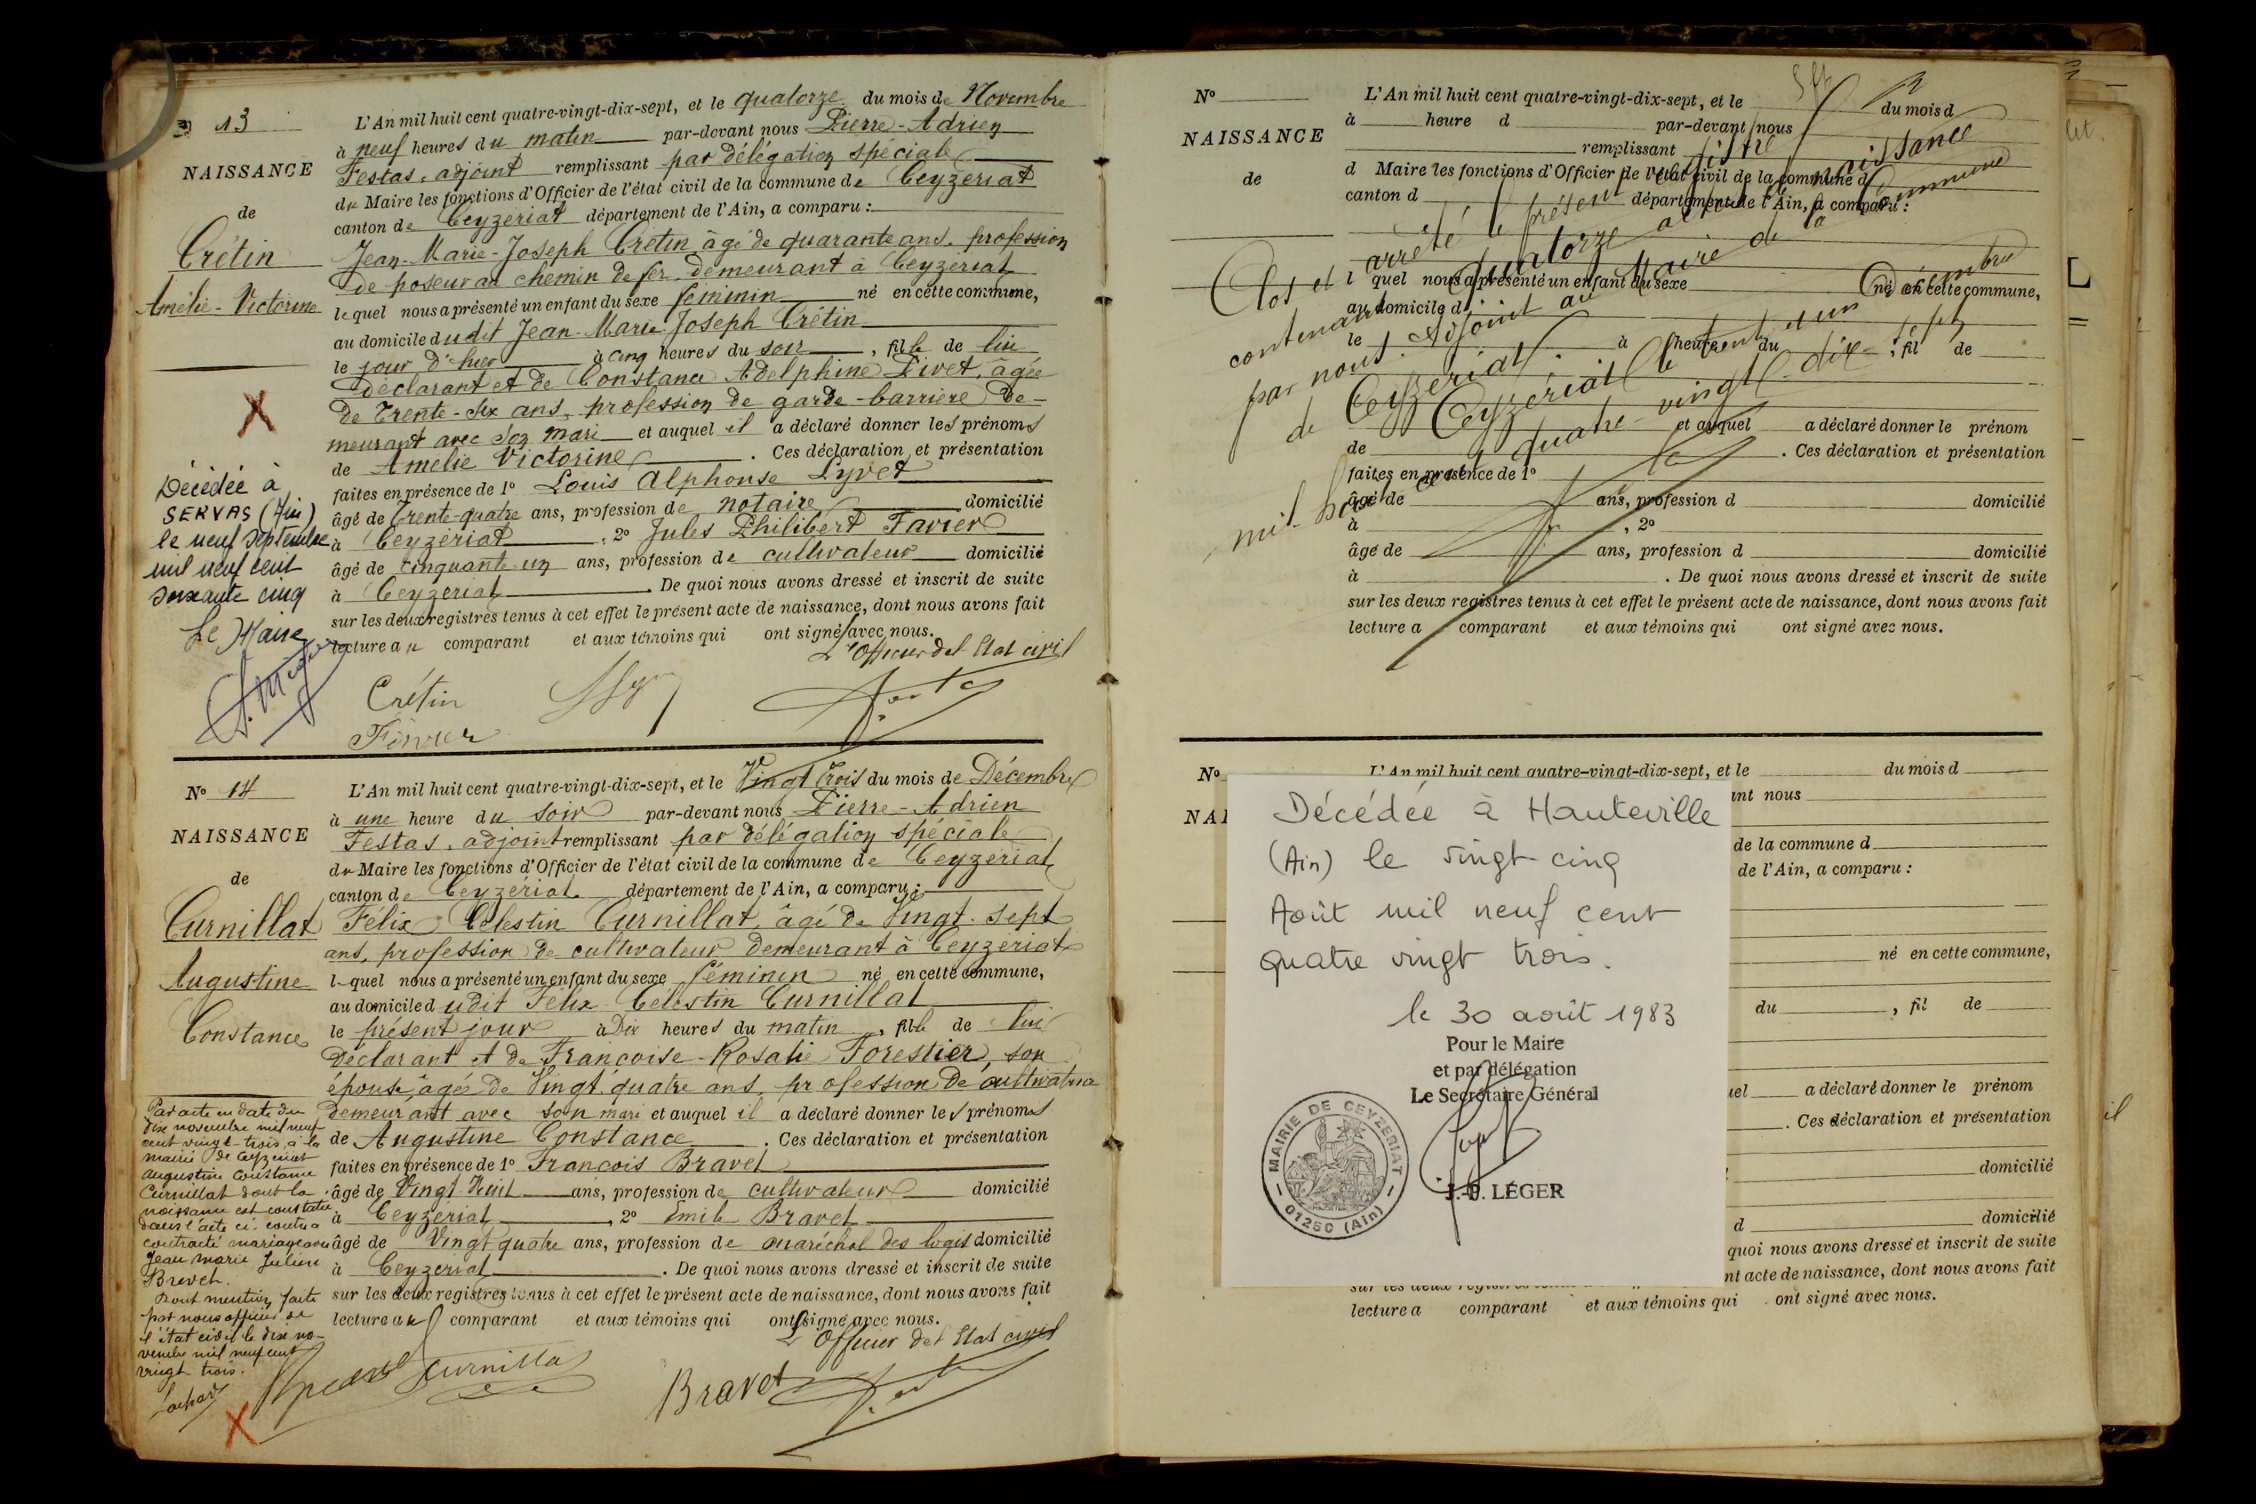 13
NAISSANCE
de
Crétin
Amélie-Victorine
L'An mil huit cent quatre-vingt-dix-sept, et le quatorze du mois de Novembre
à neuf heures du matin par-devant nous Pierre-Adrien
Festas, adjoint remplissant par délégation spéciale
du Maire les fonctions d'Officier de l'état civil de la commune de Ceyzériat
canton de Ceyzériat département de l'Ain, a comparu :
Jean-Marie-Joseph Crétin âgé de quarante ans, profession
de poseur au chemin de fer demeurant à Ceyzériat
lequel nous a présenté un enfant du sexe féminin né en cette commune,
au domicile dudit Jean-Marie-Joseph Crétin
le jour d'hier à cinq heures du soir, fille de lui
déclarant et de Constance Adelphine Livet, âgée
de Trente-six ans, profession de garde-barrière de-
meurant avec son mari et auquel il a déclaré donner les prénoms
de Amélie Victorine. Ces déclaration et présentation
faites en présence de 1º Louis Alphonse Lyvet
âgé de Trente-quatre ans, profession de notaire domicilié
à Ceyzériat, 2º Jules Philibert Favier
âgé de cinquante-un ans, profession de cultivateur domicilié
à Ceyzériat. De quoi nous avons dressé et inscrit de suite
sur les deux registres tenus à cet effet le présent acte de naissance, dont nous avons fait
lecture au comparant et aux témoins qui ont signé avec nous.
L'Officier de l'Etat civil
Crétin
Favier
Décédée à
SERVAS (Ain)
le neuf septembre
mil neuf cent
soixante cinq
Le Maire
Nº 14
NAISSANCE
de
Curnillat
Augustine
Constance
L'An mil huit cent quatre-vingt-dix-sept, et le Vingt Trois du mois de Décembre
à une heure du soir par-devant nous Pierre-Adrien
Festas, adjoint remplissant par délégation spéciale
du Maire les fonctions d'Officier de l'état civil de la commune de Ceyzériat
canton de Ceyzériat département de l'Ain, a comparu :
Félix Célestin Curnillat, âgé de Vingt-sept
ans, profession de cultivateur demeurant à Ceyzériat
lequel nous a présenté un enfant du sexe féminin né en cette commune,
au domicile dudit Félix Célestin Curnillat
le présent jour à Dix heures du matin, fille de lui
Déclarant et de Françoise-Rosalie Forestier, son
épouse âgée de Vingt quatre ans, profession de cultivatrice
demeurant avec son mari et auquel il a déclaré donner les prénoms
de Augustine Constance. Ces déclaration et présentation
faites en présence de 1º François Bravet
âgé de Vingt Huit ans, profession de cultivateur domicilié
à Ceyzériat, 2º Emile Bravet
âgé de Vingt quatre ans, profession de maréchal des logis domicilié
à Ceyzériat. De quoi nous avons dressé et inscrit de suite
sur les deux registres tenus à cet effet le présent acte de naissance, dont nous avons fait
lecture au comparant et aux témoins qui ont signé avec nous.
L'Officier de l'Etat civil
Curnillat
Bravet
Par acte en date du
dix novembre mil neuf
cent vingt-trois, à la
mairie de Ceyzériat
Augustine Constance
Curnillat dont la
naissance est constatée
dans l'acte ci-contre a
contracté mariage avec
Jean Marie Julien
Brevet.
Dont mention faite
par nous officier de
l'état civil le dix no-
vembre mil neuf cent
vingt trois.
Nº
NAISSANCE
de
L'An mil huit cent quatre-vingt-dix-sept, et le du mois d
à heure d par-devant nous
remplissant
d Maire les fonctions d'Officier de l'état civil de la commune d
canton d département de l'Ain, a comparu :
l quel nous a présenté un enfant du sexe né en cette commune,
au domicile d
le à heure du, fil de
et auquel a déclaré donner le prénom
de. Ces déclaration et présentation
faites en présence de 1º
âgé de ans, profession d domicilié
à, 2º
âgé de ans, profession d domicilié
à. De quoi nous avons dressé et inscrit de suite
sur les deux registres tenus à cet effet le présent acte de naissance, dont nous avons fait
lecture a comparant et aux témoins qui ont signé avec nous.
Clos et arrêté le présent registre
contenant quatorze actes de naissance
par nous Adjoint au Maire de la commune
de Ceyzériat.
Ceyzériat le trente et un Décembre
mil huit cent quatre-vingt-dix-sept
Nº
L'An mil huit cent quatre-vingt-dix-sept, et le du mois d
NAI
nt nous
de la commune d
de l'Ain, a comparu :
né en cette commune,
du, fil de
uel a déclaré donner le prénom
. Ces déclaration et présentation
domicilié
d domicilié
quoi nous avons dressé et inscrit de suite
nt acte de naissance, dont nous avons fait
lecture a comparant et aux témoins qui ont signé avec nous.
Décédée à Hauteville
(Ain) le vingt-cinq
Août mil neuf cent
quatre vingt trois.
le 30 août 1983
Pour le Maire
et par délégation
Le Secrétaire Général
J.-P. LÉGER
MAIRIE DE CEYZERIAT
01250 (Ain)